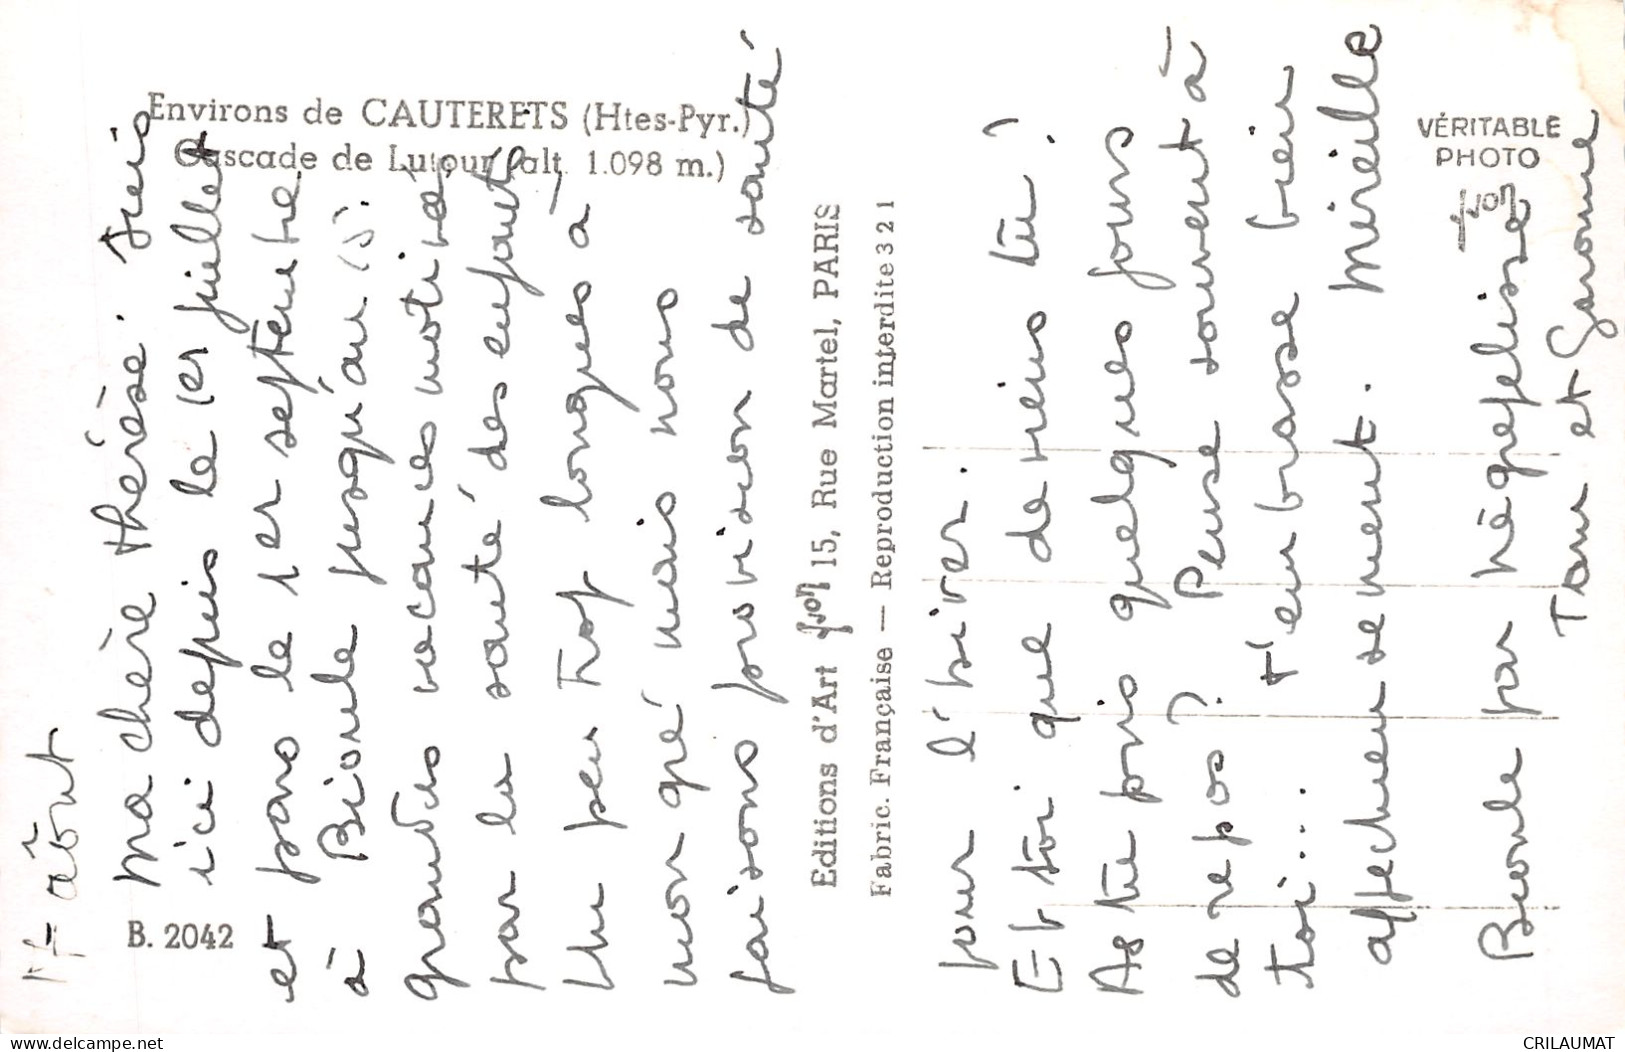 Environs de CAUTERETS (Htes-Pyr.)
Cascade de Lutour (alt. 1.098 m.)
VÉRITABLE
PHOTO
yvon
B. 2042
Editions d'Art yvon 15, Rue Martel, PARIS
Fabric. Française — Reproduction interdite 321
17 août
Ma chère thérèse. Suis
ici depuis le 1er juillet
et pars le 1er septembre
à Bioule jusqu'au 15.
grandes vacances motivées
par la santé des enfants,
un peu trop longues à
mon gré mais nous
faisons provision de santé
pour l'hiver.
Et toi que deviens tu ?
As tu pris quelques jours
de repos ? Pense souvent à
toi... t'embrasse bien
affectueusement. Mireille
Bioule par Nègrepelisse
Tarn et Garonne
B. 2042
CRILAUMAT